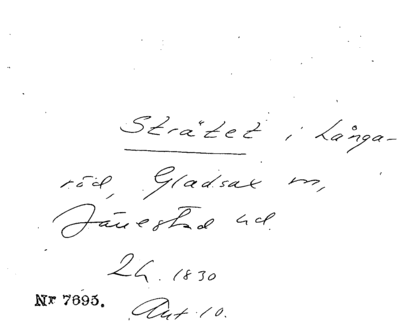 Strätet i Långa-
röd, Gladsax m,
Järrestad hd.
Lh. 1830
Nr 7695.
Ant. 10.